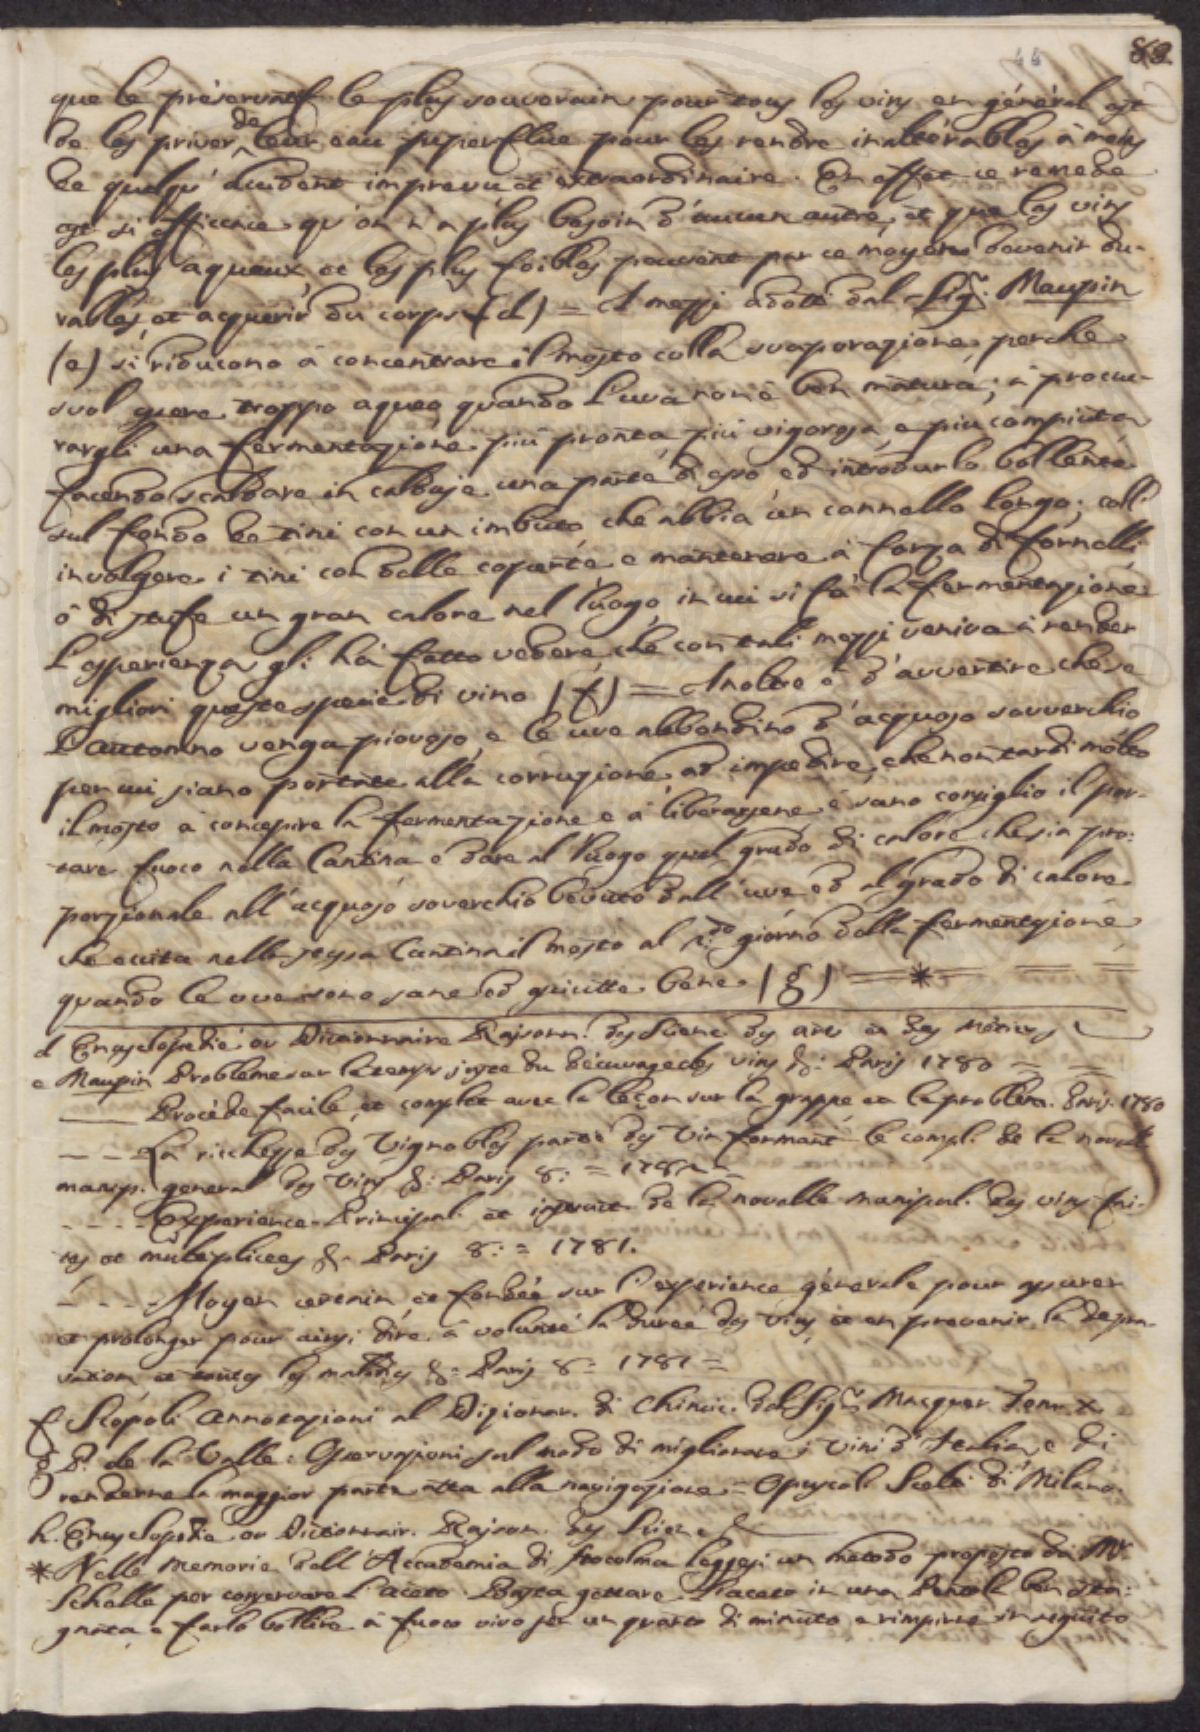 82
que le préservatif le plus souverain pour tous les vins en général est
de les priver de leur eau superflüe pour les rendre inaltérables à moins
de quelqu' accident imprevu et extraordinaire. En effet ce remede
est si efficace qu'on n'a plus besoin d'aucun autre, et que les vins
les plus aqueux, et les plus foibles peuvent par ce moyen devenir du-
rables, et acquerir du corps (d) = I mezzi adotti dal Sig.r Maupin
(e) si riducono à concentrare il mosto colla svaporazione, perche
suol essere troppo aqueo quando l'uva non è ben matura; à procu-
rargli una fermentazione più pronta più vigorosa, e più compiuta
facendo scaldare in caldaje una parte di esso ed introdurlo bollente
sul fondo de tini con un imbuto, che abbia un cannello longo; coll'
involgere i tini con delle coperte e mantenere à forza di fornelli
ò di stufe un gran calore nel luogo, in cui si fà la fermentazione
L'esperienza gli hà fatto vedere che con tali mezzi veniva à render
migliori queste specie di vino (f) = Inoltre è d'avvertire che se
l'autonno venga piovoso, e le uve abbondino d'acquoso soverchio
per cui siano portate alla corruzione, ad impedire, che non tardi molto
il mosto à concepire la fermentazione e à liberarsene è sano consiglio il por-
tare fuoco nella Cantina e dare al luogo quel grado di calore che sia pro:
porzionale all'acquoso soverchio bevuto dall'uve ed al grado di calore
che ecita nella stessa Cantina il mosto al giorno della fermentazione
quando le uve sono sane ed asciutte bene. (g) = * = = =
d Encyclopedie ou Dictionnaire Raisonn. des Scienc. des arts et des Métiers
e Maupin Probleme sur le temps juste du décuvage des vins &: Paris 1780 = =
—— Procéde facile, et complet avec la leçon sur la grappe et le problém. Paris. 1780
— — La richesse des Vignobles par des Vin formant le compl. de la nouvelle
manip. general des Vins &: Paris 8.: = 1781 =
- - - - Experience Principal. et de la nouvelle manipul. des vins fai-
tes et multeplicees &: Paris 8.: = 1781.
- - - -: Moyen certain, et fondée sur l'experience générale pour assurer
et prolonger pour ainsi dire à volunté la durée des Vins et en prevenir la depra-
vation et toutes les maladies &: Paris 8.: 1781 =
f Scopoli Annotazioni al Dizionar. di Chimic. del Sig.r Macquer Tom. X.
g P. de la Valle: Osservazioni sul modo di migliorare i Vini d'Italia, e di
renderne la maggior parte atta alla navigazione = Opuscol. Scelt. di Milano.
h. Encyclopedie ou Dictionnair. Raison. des Scienc. &
* Nelle Memorie dell'Accademia di Stocolma leggesi un metodo proposto da Mr.
Schelle per conservare l'aceto. Basta gettare l'aceto in una Pentola ben sta:
gnata e farlo bollire à fuoco vivo per un quarto di minuto e rimpirne in seguito